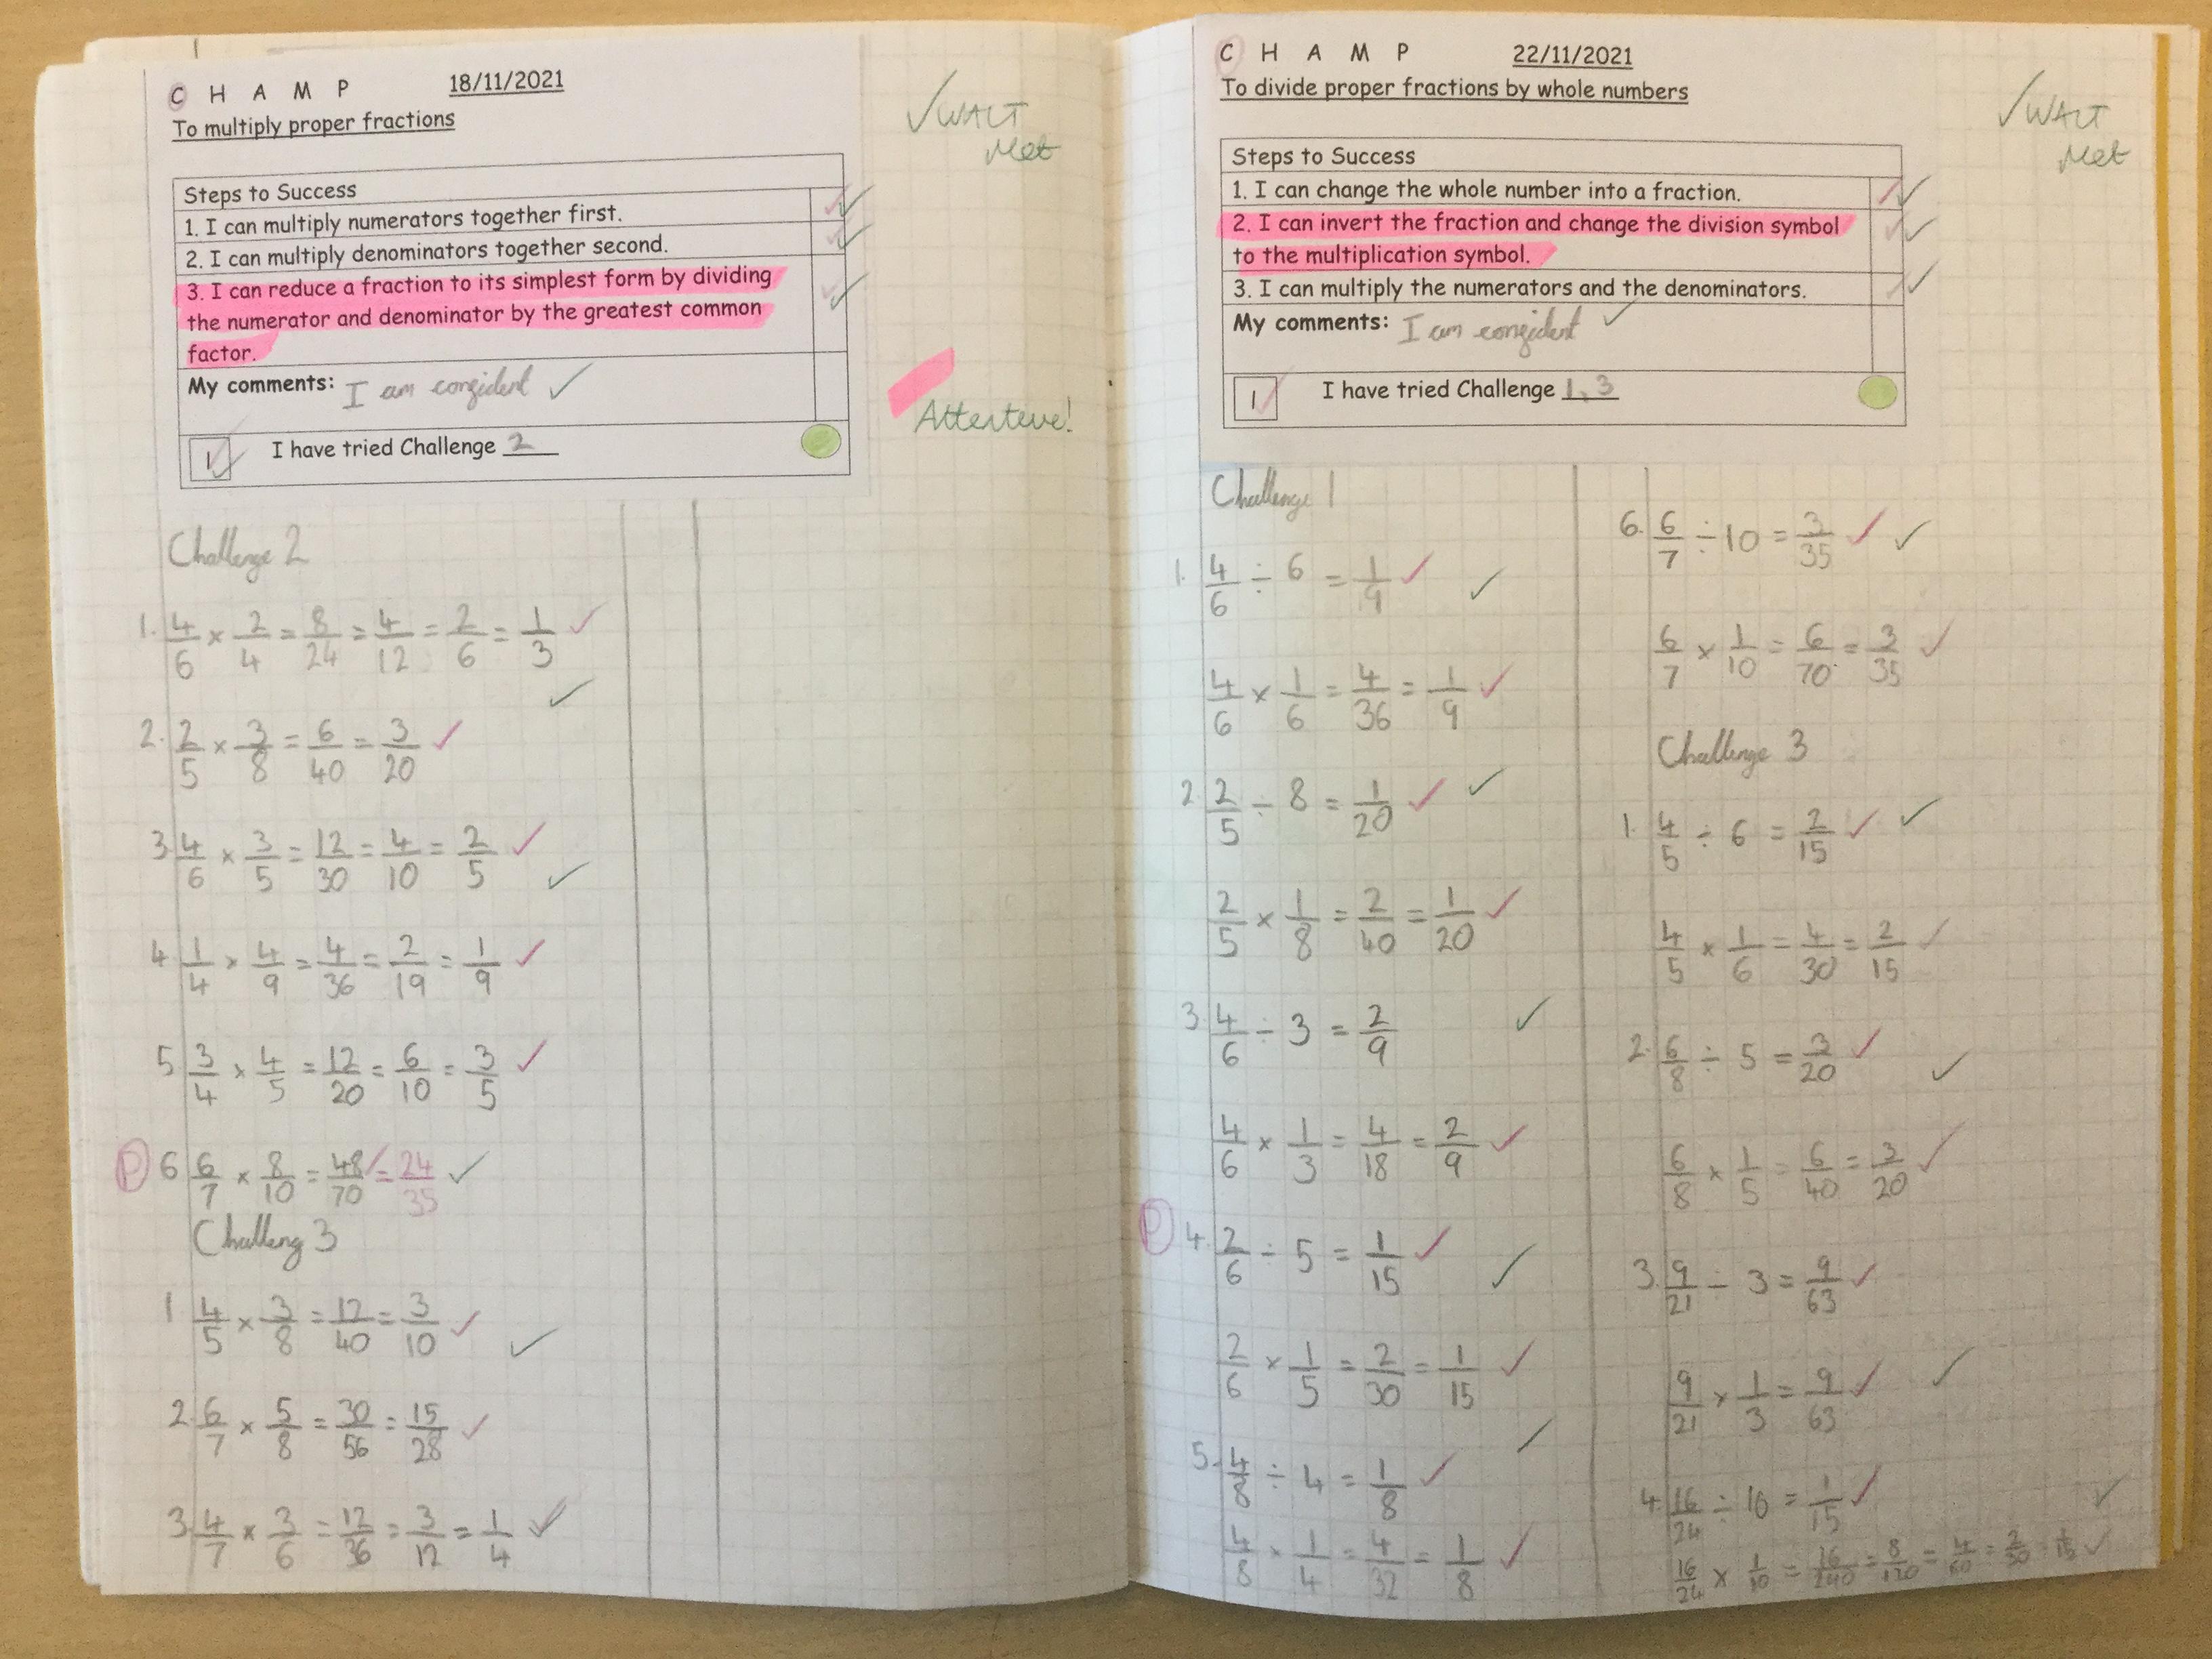 C H A M P 18/11/2021
To multiply proper fractions
Steps to Success
1. I can multiply numerators together first.
2. I can multiply denominators together second.
3. I can reduce a fraction to its simplest form by dividing
the numerator and denominator by the greatest common
factor.
My comments: I am confident ✓
1 I have tried Challenge 2
✓ WALT
Met
Attentive!
Challenge 2
1. 4/6 × 2/4 = 8/24 = 4/12 = 2/6 = 1/3 ✓
2. 2/5 × 3/8 = 6/40 = 3/20 ✓
3 4/6 × 3/5 = 12/30 = 4/10 = 2/5 ✓
4 1/4 × 4/9 = 4/36 = 2/19 = 1/9 ✓
5 3/4 × 4/5 = 12/20 = 6/10 = 3/5 ✓
P 6 6/7 × 8/10 = 48/70 = 24/35 ✓
Challeng 3
1 4/5 × 3/8 = 12/40 = 3/10 ✓
2 6/7 × 5/8 = 30/56 = 15/28 ✓
3 4/7 × 3/6 = 12/36 = 3/12 = 1/4 ✓
C H A M P 22/11/2021
To divide proper fractions by whole numbers
Steps to Success
1. I can change the whole number into a fraction.
2. I can invert the fraction and change the division symbol
to the multiplication symbol.
3. I can multiply the numerators and the denominators.
My comments: I am confident ✓
1 I have tried Challenge 1, 3
✓ WALT
Met
Challenge 1
1. 4/6 ÷ 6 = 1/9 ✓
4/6 × 1/6 = 4/36 = 1/9 ✓
2 2/5 ÷ 8 = 1/20 ✓
2/5 × 1/8 = 2/40 = 1/20 ✓
3 4/6 ÷ 3 = 2/9 ✓
4/6 × 1/3 = 4/18 = 2/9 ✓
P 4. 2/6 ÷ 5 = 1/15 ✓
2/6 × 1/5 = 2/30 = 1/15 ✓
5. 4/8 ÷ 4 = 1/8 ✓
4/8 × 1/4 = 4/32 = 1/8 ✓
6. 6/7 ÷ 10 = 3/35 ✓
6/7 × 1/10 = 6/70 = 3/35 ✓
Challenge 3
1. 4/5 ÷ 6 = 2/15 ✓
4/5 × 1/6 = 4/30 = 2/15 ✓
2. 6/8 ÷ 5 = 3/20 ✓
6/8 × 1/5 = 6/40 = 3/20 ✓
3. 9/21 ÷ 3 = 9/63 ✓
9/21 × 1/3 = 9/63 ✓
4. 16/24 ÷ 10 = 1/15 ✓
16/24 × 1/10 = 16/240 = 8/120 = 4/60 = 2/30 = 1/15 ✓